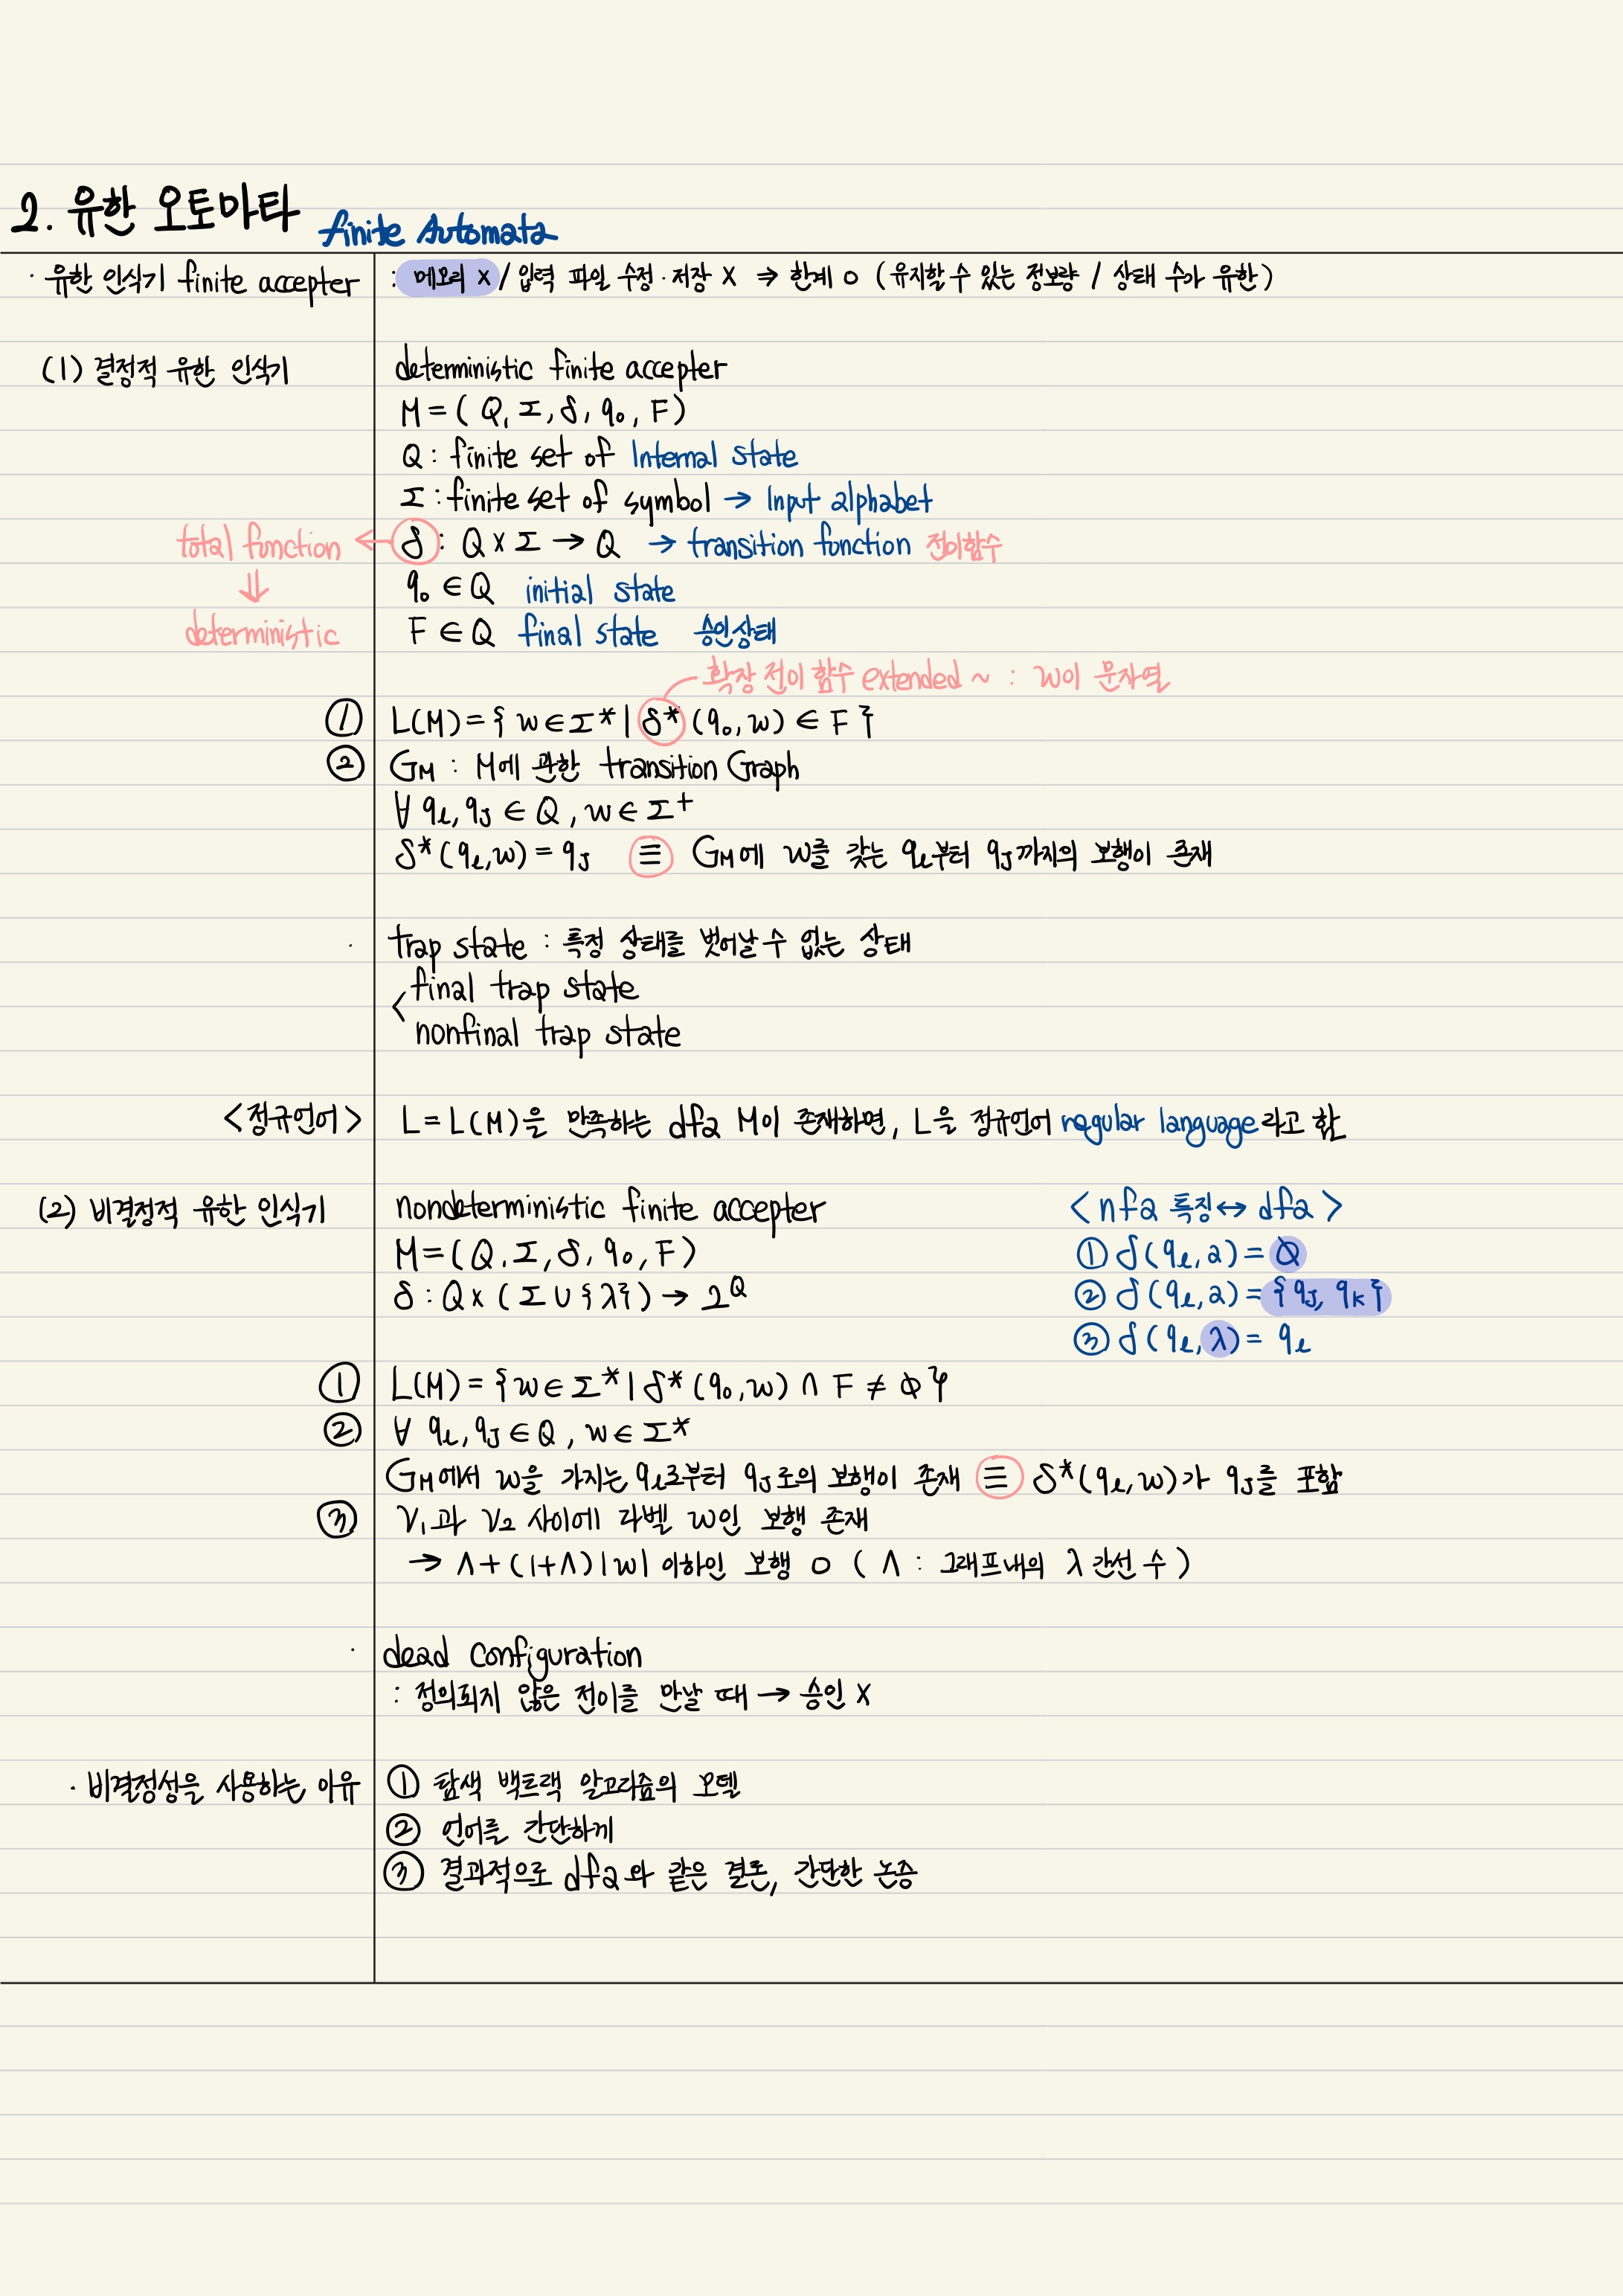 2. 유한 오토마타 finite Automata
· 유한 인식기 finite accepter : 메모리 x / 입력 파일 수정·저장 X ⇒ 한계 O (유지할 수 있는 정보량 / 상태 수가 유한)
(1) 결정적 유한 인식기 deterministic finite accepter
M = (Q, Σ, δ, q₀, F)
Q : finite set of Internal state
Σ : finite set of symbol → Input alphabet
total function ← δ : Q × Σ → Q → transition function 전이함수
⇓
q₀ ∈ Q initial state
deterministic F ∈ Q final state 승인상태
확장 전이 함수 extended ~ : w이 문자열
① L(M) = { w ∈ Σ* | δ*(q₀, w) ∈ F }
② G_M : M에 관한 transition Graph
∀ q_i, q_j ∈ Q, w ∈ Σ⁺
δ*(q_i, w) = q_j ≡ G_M에 w를 갖는 q_i부터 q_j까지의 보행이 존재
· trap state : 특정 상태를 벗어날 수 없는 상태
< final trap state
nonfinal trap state
<정규언어> L = L(M)을 만족하는 dfa M이 존재하면, L을 정규언어 regular language라고 함
(2) 비결정적 유한 인식기 nondeterministic finite accepter
M = (Q, Σ, δ, q₀, F)
δ : Q × (Σ ∪ {λ}) → 2^Q
<nfa 특징 ↔ dfa>
① δ(q_i, a) = ∅
② δ(q_i, a) = {q_j, q_k}
③ δ(q_i, λ) = q_i
① L(M) = { w ∈ Σ* | δ*(q₀, w) ∩ F ≠ ∅ }
② ∀ q_i, q_j ∈ Q, w ∈ Σ*
G_M에서 w을 가지는 q_i로부터 q_j로의 보행이 존재 ≡ δ*(q_i, w)가 q_j를 포함
③ V₁과 V₂ 사이에 라벨 w인 보행 존재
→ Λ + (1+Λ)|w| 이하인 보행 O ( Λ : 그래프내의 λ 간선 수 )
· dead configuration
: 정의되지 않은 전이를 만날 때 → 승인 X
· 비결정성을 사용하는 이유 ① 탐색 백트랙 알고리즘의 모델
② 언어를 간단하게
③ 결과적으로 dfa와 같은 결론, 간단한 논증